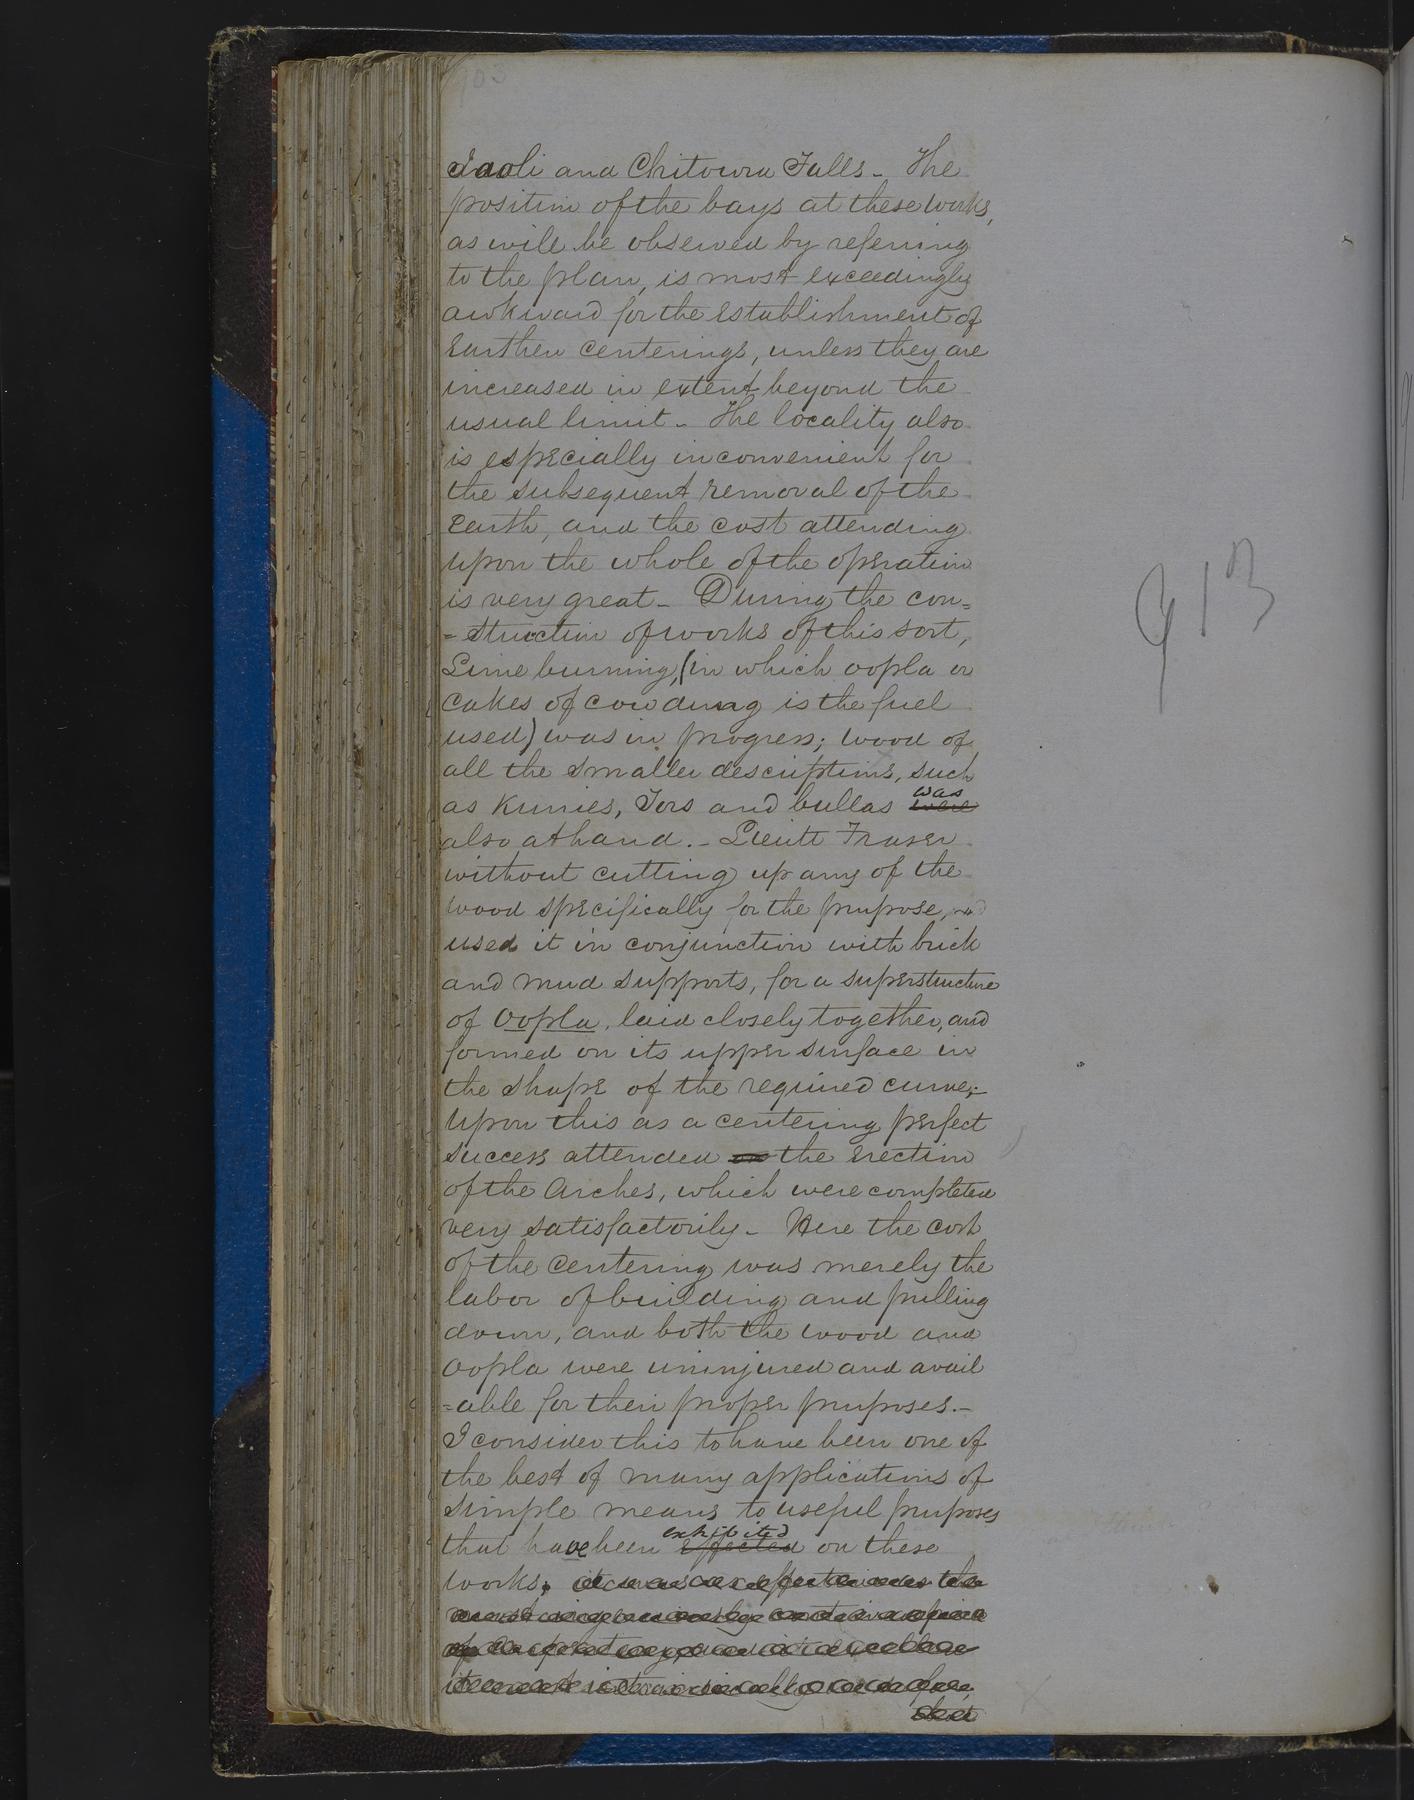 903
Jaoli and Chitowra Falls - The
position of the bays at these works,
as will be observed by referring
to the plan, is most exceedingly
awkward for the establishment of
Earthen centerings, unless they are
increased in extent beyond the
usual limit - The locality also
is especially inconvenient for
the subsequent removal of the
Earth, and the cost attending
upon the whole of the operation
is very great - During the con=
=struction of works of this sort,
Lime burning, (in which oopla or
cakes of cow dung is the fuel
used) was in progress; wood of
all the smaller descriptions, such
was
as Kurries, Tors and bullas were
also at hand. - Lieutt Fraser
without cutting up any of the
wood specifically for the purpose,
used it in conjunction with brick
and mud supports, for a superstructure
of Oopla, laid closely together, and
formed on its upper surface in
the shape of the required curve;-
Upon this as a centering perfect
success attended on the Erection
of the Arches, which were completed
very satisfactorily - Here the cost
of the Centering was merely the
labor of building and pulling
down, and both the wood and
Oopla were uninjured and avail
=able for their proper purposes.-
I consider this to have been one of
the best of many applications of
Simple means to useful purposes
exhibited
that have been effected on these
works.
913